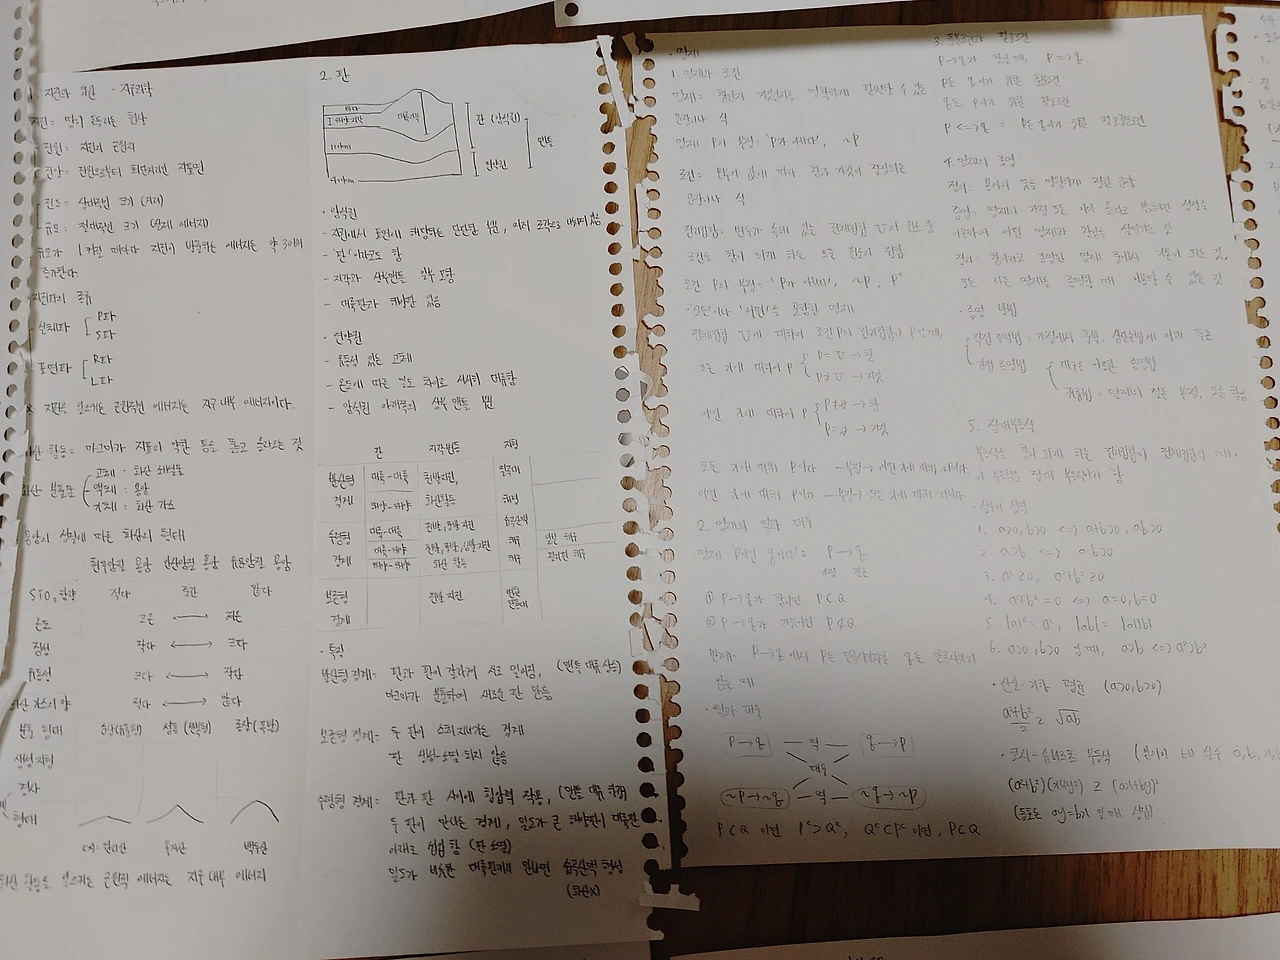 1. 지진과 화산 - 지구과학
지진 = 땅이 흔들리는 현상
진원 : 지진의 근원지
진앙 : 진원으로부터 최단거리인 지표면
진도 = 상대적인 크기 (거리)
규모 = 절대적인 크기 (실제 에너지)
규모가 1 커질 때마다 지진이 방출하는 에너지는 약 30배
증가한다
지진파의 종류
실체파 P파
S파
표면파 R파
L파
* 지진을 일으키는 근원적인 에너지는 지구 내부 에너지이다.
화산 활동 = 마그마가 지표의 약한 틈을 뚫고 올라오는 것
화산 분출물
고체 : 화산 쇄설물
액체 : 용암
기체 : 화산 가스
용암의 성질에 따른 화산의 형태
현무암질 용암 안산암질 용암 유문암질 용암
SiO₂ 함량 적다 중간 많다
온도 높은 ⟷ 낮은
점성 작다 ⟷ 크다
유동성 크다 ⟷ 작다
화산 가스의 양 적다 ⟷ 많다
분출 형태
경사
형태
예) 한라산 후지산 백두산
화산 활동을 일으키는 근원적 에너지는 지구 내부 에너지
2. 판
바다
해양지각
대륙지각
100km
400km
판 (암석권)
연약권
맨틀
· 암석권
- 지진에서 표면에 해당하는 단단한 부분, 여러 조각으로 나뉘어 있음
- '판'이라고도 함
- 지각과 상부맨틀 일부 포함
- 대륙판과 해양판 있음
· 연약권
- 유동성 있는 고체
- 온도에 따른 밀도 차이로 서서히 대류함
- 암석권 아래쪽의 상부 맨틀 부분
판 지각변동 지형
발산형 대륙-대륙 천발지진, 열곡대
경계 해양-해양 화산활동 해령
수렴형 대륙-대륙 천발, 중발지진 습곡산맥
경계 대륙-해양 천발, 중발, 심발지진 해구
해양-해양 화산 활동 해구
보존형 천발 지진 변환
경계 단층대
· 특징
발산형 경계 = 판과 판이 갈라져 서로 멀어짐, (맨틀 대류 상승)
마그마가 분출하여 새로운 판 만듦
보존형 경계 = 두 판이 스쳐 지나가는 경계
판 생성·소멸 되지 않음
수렴형 경계 = 판과 판 사이에 횡압력 작용, (맨틀 대류 하강)
두 판이 만나는 경계, 밀도가 큰 해양판이 대륙판
아래로 섭입 함 (판 소멸)
밀도가 비슷한 대륙판끼리 만나면 습곡산맥 형성
(화산X)
· 명제
1. 명제와 조건
명제 : 참인지 거짓인지 명확하게 판별할 수 있는
문장이나 식
명제 P의 부정 : 'P가 아니다', ~P
조건 : 변수의 값에 따라 참과 거짓이 결정되는
문장이나 식
진리집합 : 변수가 속해 있는 전체집합 U의 원소 중
조건도 참이 되게 하는 모든 원소의 집합
조건 P의 부정 : 'P가 아니다', ~P, Pᶜ
· '모든'이나 '어떤'을 포함한 명제
전체집합 U에 대하여 조건 P의 진리집합이 P일 때,
모든 x에 대하여 P
P=U → 참
P≠U → 거짓
어떤 x에 대하여 P
P≠∅ → 참
P=∅ → 거짓
모든 x에 대해 P이다 —부정→ 어떤 x에 대해 ~P이다
어떤 x에 대해 P이다 —부정→ 모든 x에 대해 ~P이다
2. 명제의 역과 대우
명제 'P이면 q이다' : P → q
가정 결론
① P → q가 참이면 P⊂Q
② P → q가 거짓이면 P⊄Q
반례 : P → q 에서 P는 만족시키지만 q는 만족시키지
않는 예
· 역과 대우
P → q — 역 — q → P
대우
~P → ~q — 역 — ~q → ~P
P⊂Q 이면 Pᶜ⊃Qᶜ, Qᶜ⊂Pᶜ 이면, P⊂Q
3. 충분조건과 필요조건
P → q가 참일 때, P ⟹ q
P는 q이기 위한 충분조건
q는 P이기 위한 필요조건
P ⟺ q = P는 q이기 위한 필요충분조건
4. 명제의 증명
정의 : 용어의 뜻을 명확하게 정한 문장
증명 : 명제의 가정 또는 이미 옳다고 밝혀진 성질을
이용하여 어떤 명제가 참임을 설명하는 것
정리 : 참이라고 증명된 명제 중에서 기본이 되는 것,
또는 다른 명제를 증명할 때 이용할 수 있는 것
· 증명 방법
직접 증명법 : 가정에서 출발, 삼단논법에 의해 추론
간접 증명법
대우를 이용한 증명법
귀류법 = 명제의 결론 부정, 모순 확인
5. 절대부등식
부등식을 참이 되게 하는 진리집합이 전체집합일 때,
이 부등식을 절대 부등식이라 함
· 실수의 성질
1. a>0, b>0 ⟺ a+b>0, ab>0
2. a>b ⟺ a-b>0
3. a²≥0, a²+b²≥0
4. a²+b²=0 ⟺ a=0, b=0
5. |a|²=a², |ab|=|a||b|
6. a>0, b>0 일 때, a>b ⟺ a²>b²
· 산술·기하 평균 (a>0, b>0)
a+b/2 ≥ √ab
· 코시-슈바르츠 부등식 (임의의 네 실수 a, b, x, y)
(a²+b²)(x²+y²) ≥ (ax+by)²
(등호는 ay=bx 일 때 성립)